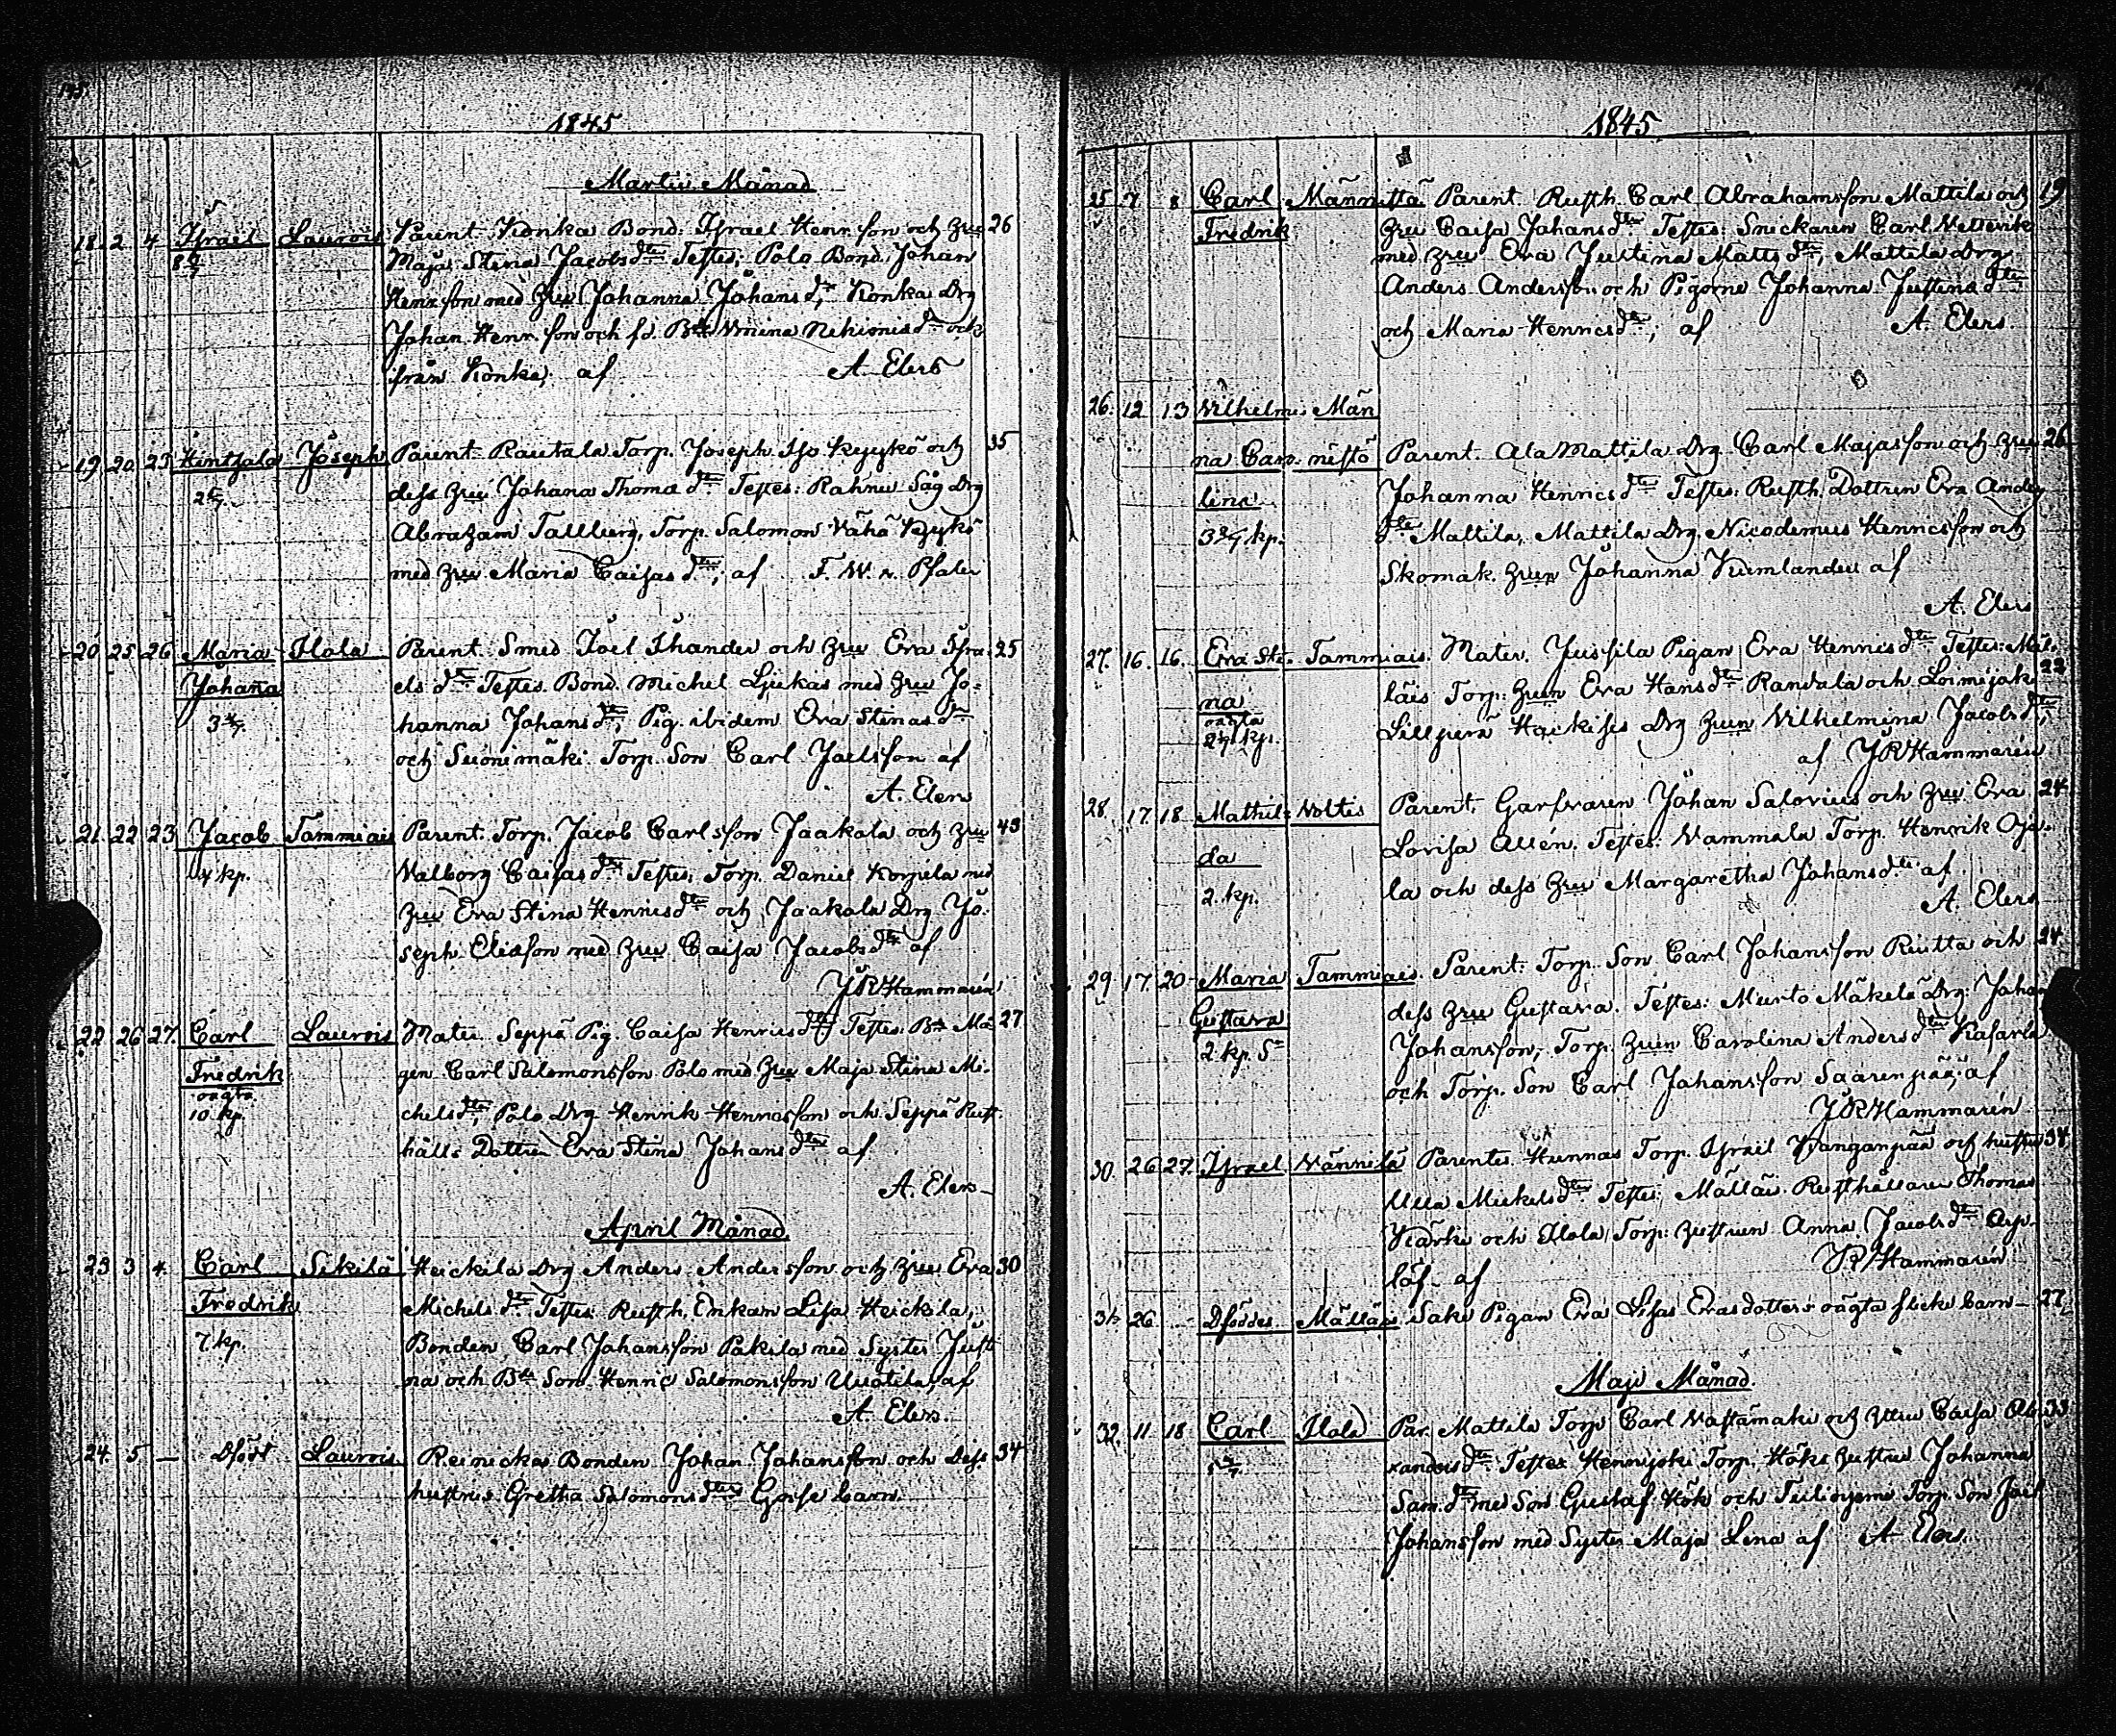 145.
1845
Martii Månad
18. 2. 4. Israel Laurois Parent. Konka Bond. Israel Henr. son och Hru 26
8 6/7 Maja Stina Jacobs dter Testes: Polo Bond. Johan
Henr. son med Hru Johanna Johans dr, Konka Drg
Johan Henr. son och fd. Bde Vmina Nehimis dr ock
från Konka, af A. Elers
19. 20. 23. Joseph Parent. Rautala Torp. Joseph Iso Kyykö och 35
2 6/7 dess Hru Johana Thoma dter Testes: Rahnu Såg Drg
Abraham Tallberg, Torp. Salomon Vähä Kyykö
med Hru Maria Caisas dter, af F. W. v. Pfaler
20 25 26 Maria Ilola Parent. Smed Joel Thander och Hru Eva Isra 25
Johana els dter Testes. Bond. Michel Ljukas med Hru Jo=
3 4/7. hanna Johans dtr, Pig. ibidem Eva Stinas dr
och Suonimäki Torp. Son Carl Joelsson af
A. Elers
21. 22 23 Jacob Tammiais Parent. Torp. Jacob Carlsson Jaakola och Hru 43
4 kp. Valborg Caisas dtr Testes. Torp. Daniel Korpela med
Hru Eva Stina Henrics dtr och Jaakola Drg Jo.
seph Eliasson med Hru Caisa Jacobs dtr af
J R Hammarén
22 26 27. Carl Laurois Mater Seppä Pig. Caisa Henrics dtr Testes: Bde Må 27
Fredrik gen Carl Salomonsson Polo med Hru Maja Stina Mi.
oägta chels dter, Polo Drg Henrik Henricsson och Seppä Rust
10 kp. hålls Dottren Eva Stina Johans dter af
A. Elers
April Månad
23 3 4. Carl Sikilä Heickila Drg Anders Andersson och Hru Eva 30
Fredrik Michels dtr Testes Rusth. Enkan Lisa Heickila,
7 kp. Bonden Carl Johansson Päkila med Syster Justi
na och Bde Son Henric Salomonsson Uuotila, af
A. Elers.
24. 5. — Dfödt Laurois. Reinickas Bonden Johan Johansson och Dess 34
hustrus Gretha Salomons dters Gosse barn.
1845
25 7 8 Carl Männistä Parent. Rusth. Carl Abrahamsson Mattila och 19
Fredrik Hru Caisa Johans dtr Testes: Snickaren Carl
med Hru Eva Justina Matts dtr, Mattila Drg
Anders Andersson och Pigorne Johanna Justina dtr
och Maria Henrics dtr, af A. Elers.
26. 12 13 Vilhelmi Män
na Caro. nistö Parent. Ala Mattila Drg. Carl Majasson och Hru 26
lina Johanna Henrics dtr Testes. Rusth. Dottren Eva Anders
3 2/7 kp. dtr Mattila, Mattila Drg. Nicodemus Henricsson och
Skomak. Hrun Johanna Kumlander af
A. Elers
27. 16. 16. Eva Sti. Tammiais. Mater. Jussila Pigan Eva Henrics dtr Testes: Mäl. 22
na läis Torp. Hrun Eva Hans dtr Randala och Loimijoki
oägta Hrun Vilhelmina Jacobs dtr,
2 kp. af J R Hammarén
28. 17. 18 Mathil= Noltis Parent. Garfvaren Johan Salovius och Hru Eva 24
da Lovisa Allén. Testes. Vammala Torp. Henrik Oja.
2. kp. la och dess Hru Margaretha Johans dtr af
A. Elers
29 17 20 Maria Tammiais Parent. Torp. Son Carl Johansson Riutta och 24
Gustava dess Hru Gustava. Testes: Murto Mäkelä Drg. Johan
2 kp. Johansson, Torp. Hrun Carolina Anders dtr
och Torp. Son Carl Johansson Saarenpää, af
J R Hammarén
30. 26 27. Israel Vännilä Parentes. Hunnas Torp. Israel och hustru 34
Ulla Mickels dtr Testes. Mälläis Rusthållaren Thomas
Kärki och Ilola Torp: hustrun Anna Jacobs dtr
af J R Hammarén
31. 26 — Dföddes Mälläis. Saki Pigan Eva Lisas Erasdotters oägta flicke barn — 27
Maji Månad.
32. 11 18 Carl Ilola Par. Mattila Torp Carl Vastämaki och Hru Caisa 33
Testes Hennijoki Torp. Höks hustru Johanna
Sam. dtr med Son Gustaf Hök och Torp. Son Joel
Johansson med Syster Maja Lena af A. Elers.